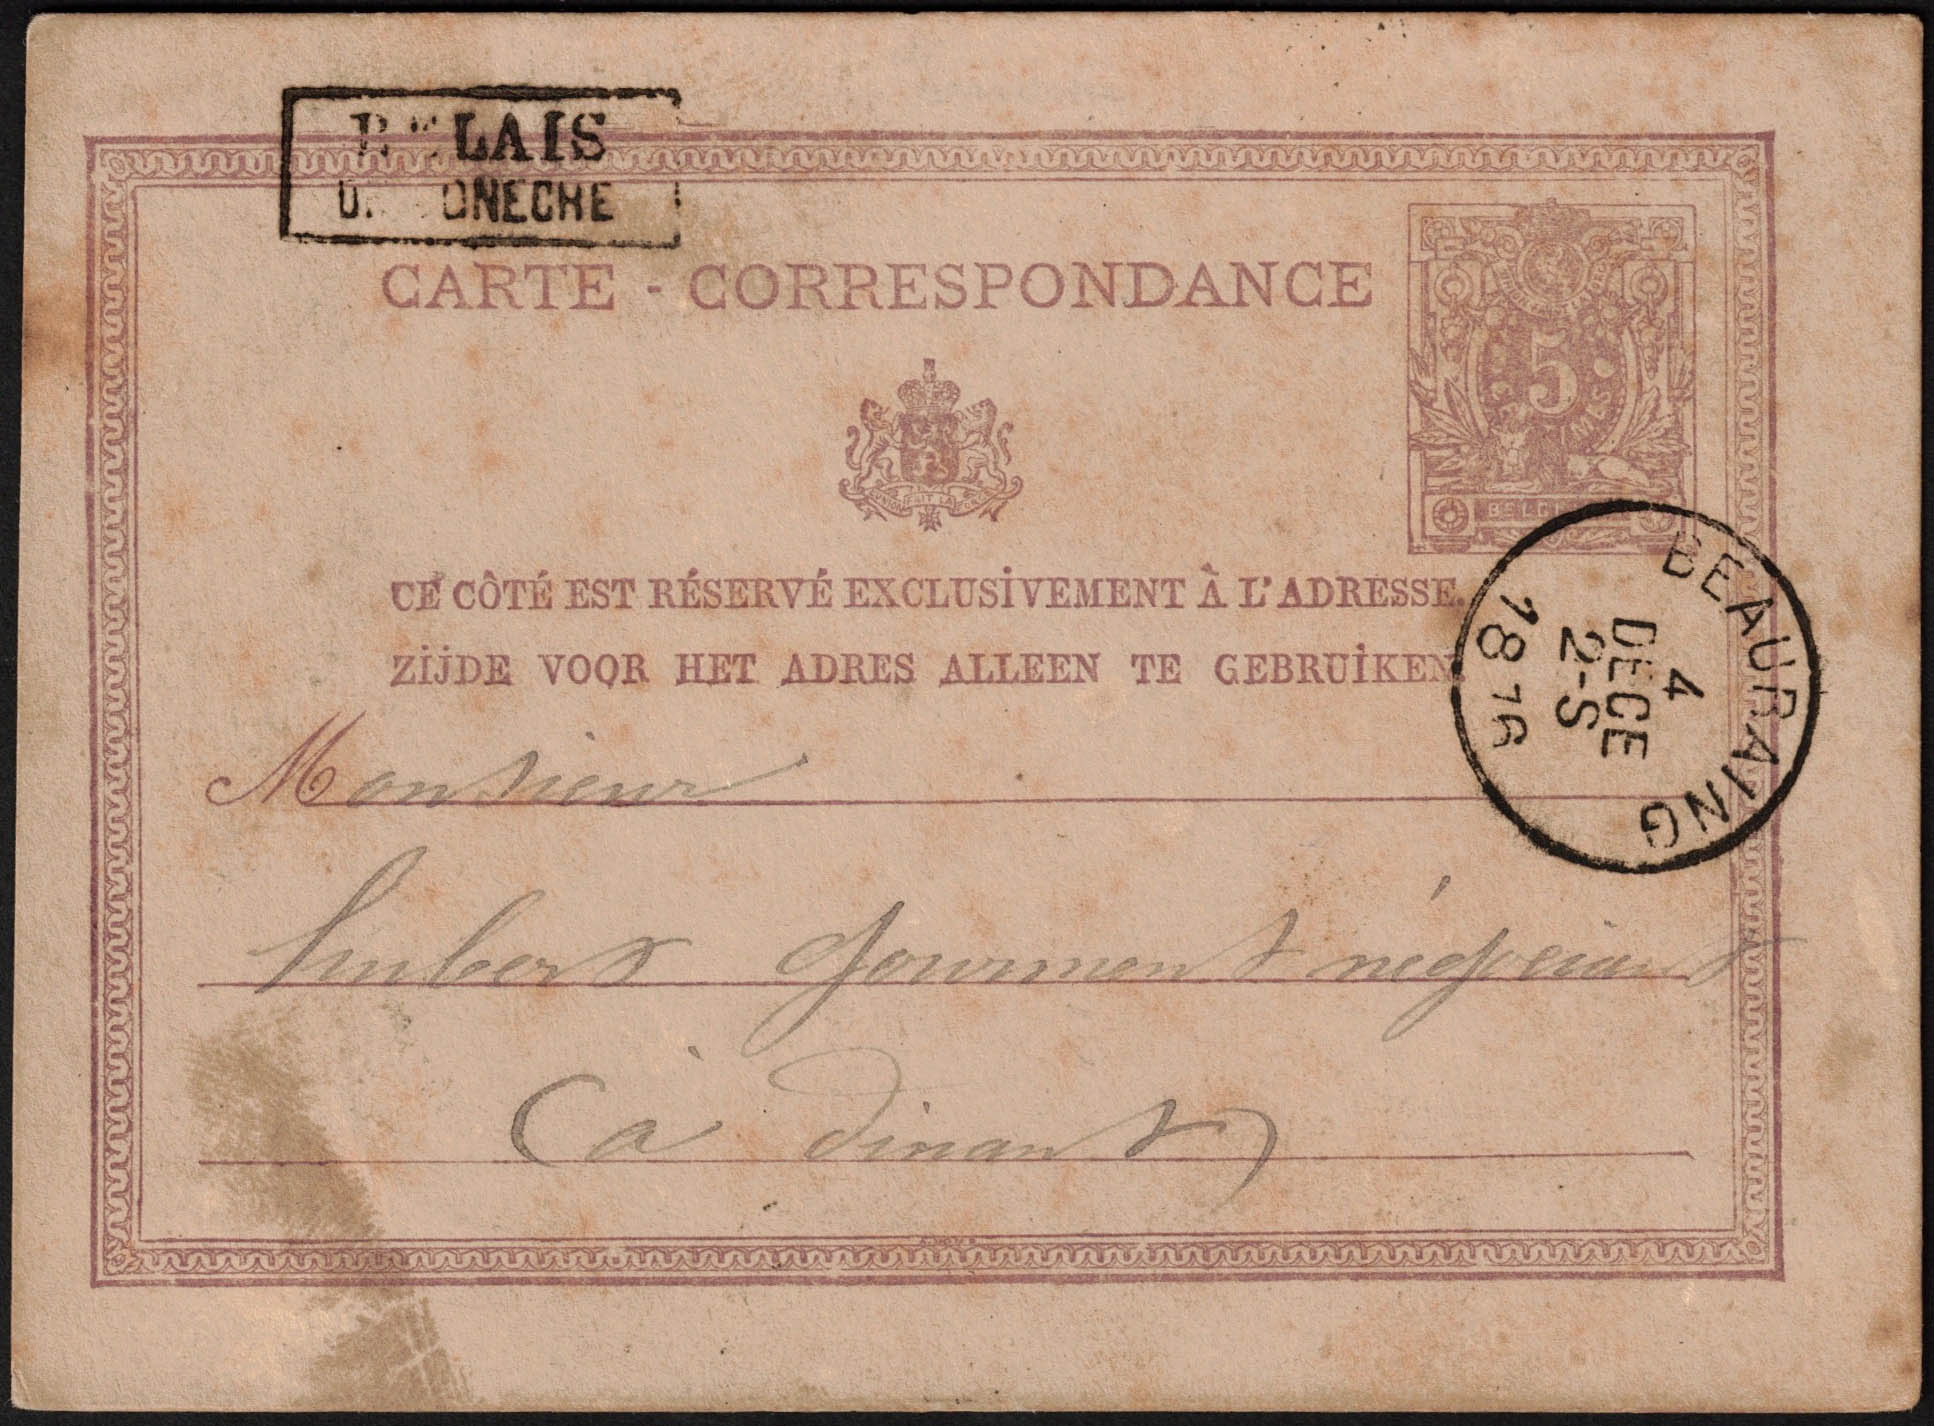 RELAIS
ONECHE
CARTE - CORRESPONDANCE
5
BELGI
UNION FAIT LA FORCE
CE CÔTÉ EST RÉSERVÉ EXCLUSIVEMENT À L'ADRESSE.
ZIJDE VOOR HET ADRES ALLEEN TE GEBRUIKEN.
BEAURAING
4
DECE
2-S
1876
Monsieur
Gourment négociant
à dinant